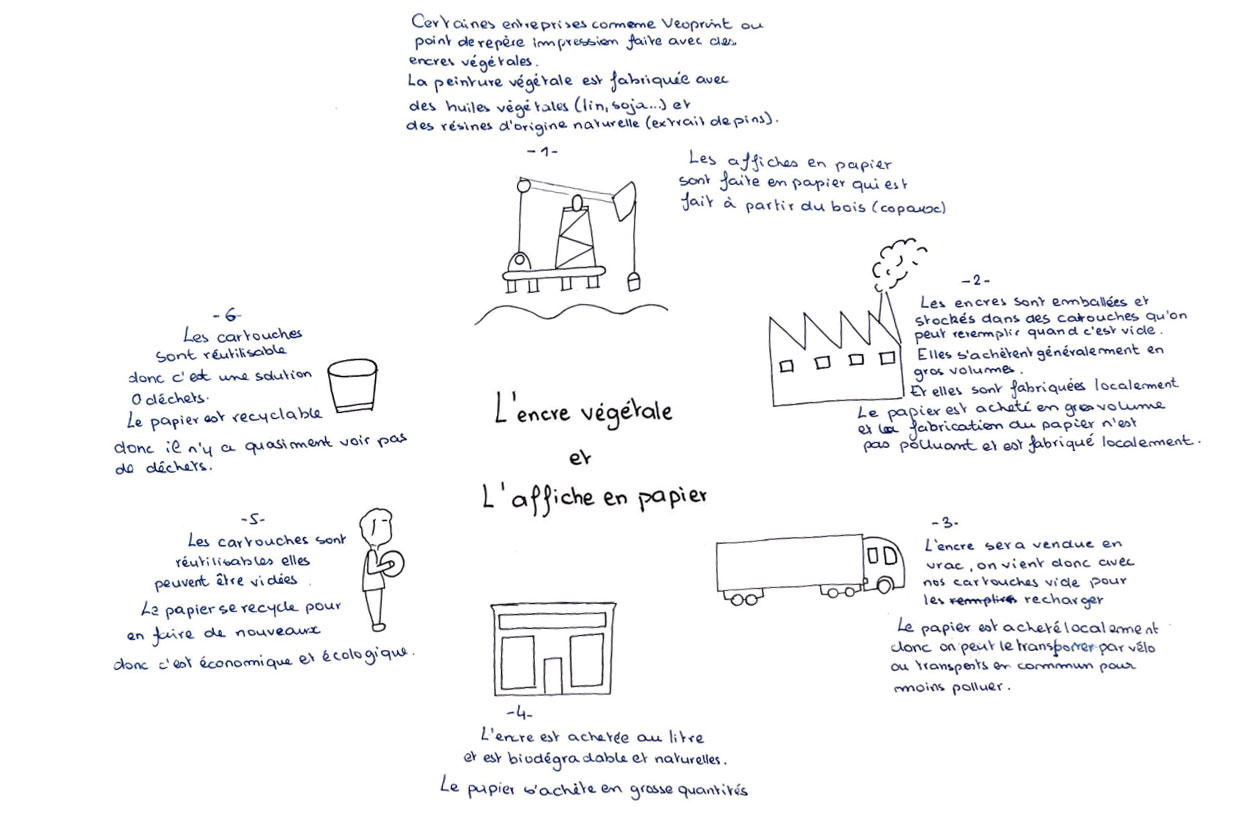 Certaines entreprises comme Veoprint ou
point de repère impression faite avec des
encres végétales.
La peinture végétale est fabriquée avec
des huiles végétales (lin, soja...) et
des résines d'origine naturelle (extrait de pins).
-1-
Les affiches en papier
sont faite en papier qui est
fait à partir du bois (copaux)
-2-
Les encres sont emballées et
stockés dans des catouches qu'on
peut reremplir quand c'est vide.
Elles s'achètent généralement en
gros volumes.
Et elles sont fabriquées localement
Le papier est acheté en gros volume
et la fabrication du papier n'est
pas polluant et est fabriqué localement.
-3-
L'encre sera vendue en
vrac, on vient donc avec
nos cartouches vide pour
les remplire recharger
Le papier est acheté localement
donc on peut le transporter par vélo
ou transports en commun pour
moins polluer.
-4-
L'encre est achetée au litre
et est biodégradable et naturelles.
Le papier s'achète en grosse quantités
-5-
Les cartouches sont
réutilisables elles
peuvent être vidées.
Le papier se recycle pour
en faire de nouveaux
donc c'est économique et écologique.
-6-
Les cartouches
sont réutilisable
donc c'est une solution
0 déchets.
Le papier est recyclable
donc il n'y a quasiment voir pas
de déchets.
L'encre végétale
et
L'affiche en papier